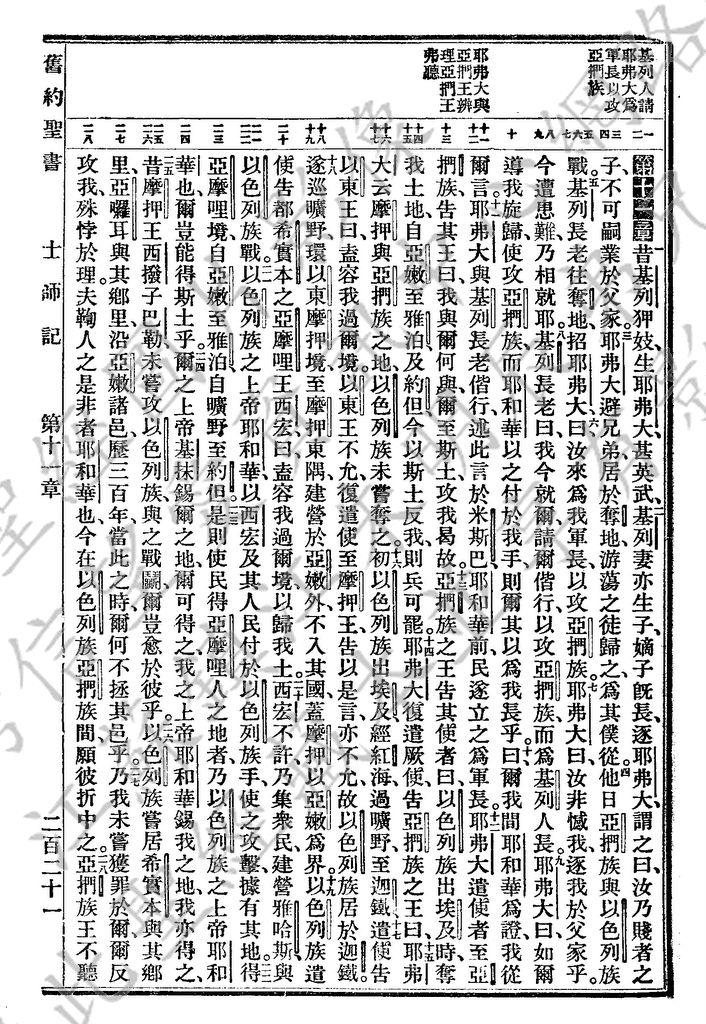 基列人請
耶弗大爲
軍長以攻
亞捫族
耶弗大與
亞捫王辨
理亞捫王
弗聽
第十一章昔基列狎妓生耶弗大甚英武基列妻亦生子嫡子旣長逐耶弗大謂之曰汝乃賤者之
子不可嗣業於父家耶弗大避兄弟居於奪地游蕩之徒歸之爲其僕從他日亞捫族與以色列族
戰基列長老往奪地招耶弗大曰汝來爲我軍長以攻亞捫族耶弗大曰汝非憾我逐我於父家乎
今遭患難乃相就耶基列長老曰我今就爾請爾偕行以攻亞捫族而爲基列人長耶弗大曰如爾
導我旋歸使攻亞捫族而耶和華以之付於我手則爾其以爲我長乎曰爾我間耶和華爲證我從
爾言耶弗大與基列長老偕行述此言於米斯巴耶和華前民遂立之爲軍長耶弗大遣使者至亞
捫族告其王曰我與爾何與爾至斯土攻我曷故亞捫族之王告其使者曰以色列族出埃及時奪
我土地自亞嫩至雅泊及約但今以斯土反我則兵可罷耶弗大復遣厥使告亞捫族之王曰耶弗
大云摩押與亞捫族之地以色列族未嘗奪之初以色列族出埃及經紅海過曠野至迦鐵遣使告
以東王曰盍容我過爾境以東王不允復遣使至摩押王告以是言亦不允故以色列族居於迦鐵
遂巡曠野環以東摩押境至摩押東隅建營於亞嫩外不入其國蓋摩押以亞嫩爲界以色列族遣
使告都希實本之亞摩哩王西宏曰盍容我過爾境以歸我土西宏不許乃集衆民建營雅哈斯與
以色列族戰以色列族之上帝耶和華以西宏及其人民付於以色列族手使之攻擊據有其地得
亞摩哩境自亞嫩至雅泊自曠野至約但是則使民得亞摩哩人之地者乃以色列族之上帝耶和
華也爾豈能得斯土乎爾之上帝基抹錫爾之地爾可得之我之上帝耶和華錫我之地我亦得之
昔摩押王西撥子巴勒未嘗攻以色列族與之戰鬭爾豈愈於彼乎以色列族嘗居希實本與其鄉
里亞囉耳與其鄉里沿亞嫩諸邑歷三百年當此之時爾何不拯其邑乎乃我未嘗獲罪於爾爾反
攻我殊悖於理夫鞠人之是非者耶和華也今在以色列族亞捫族間願彼折中之亞捫族王不聽
舊約聖書 士師記 第十一章 二百二十一